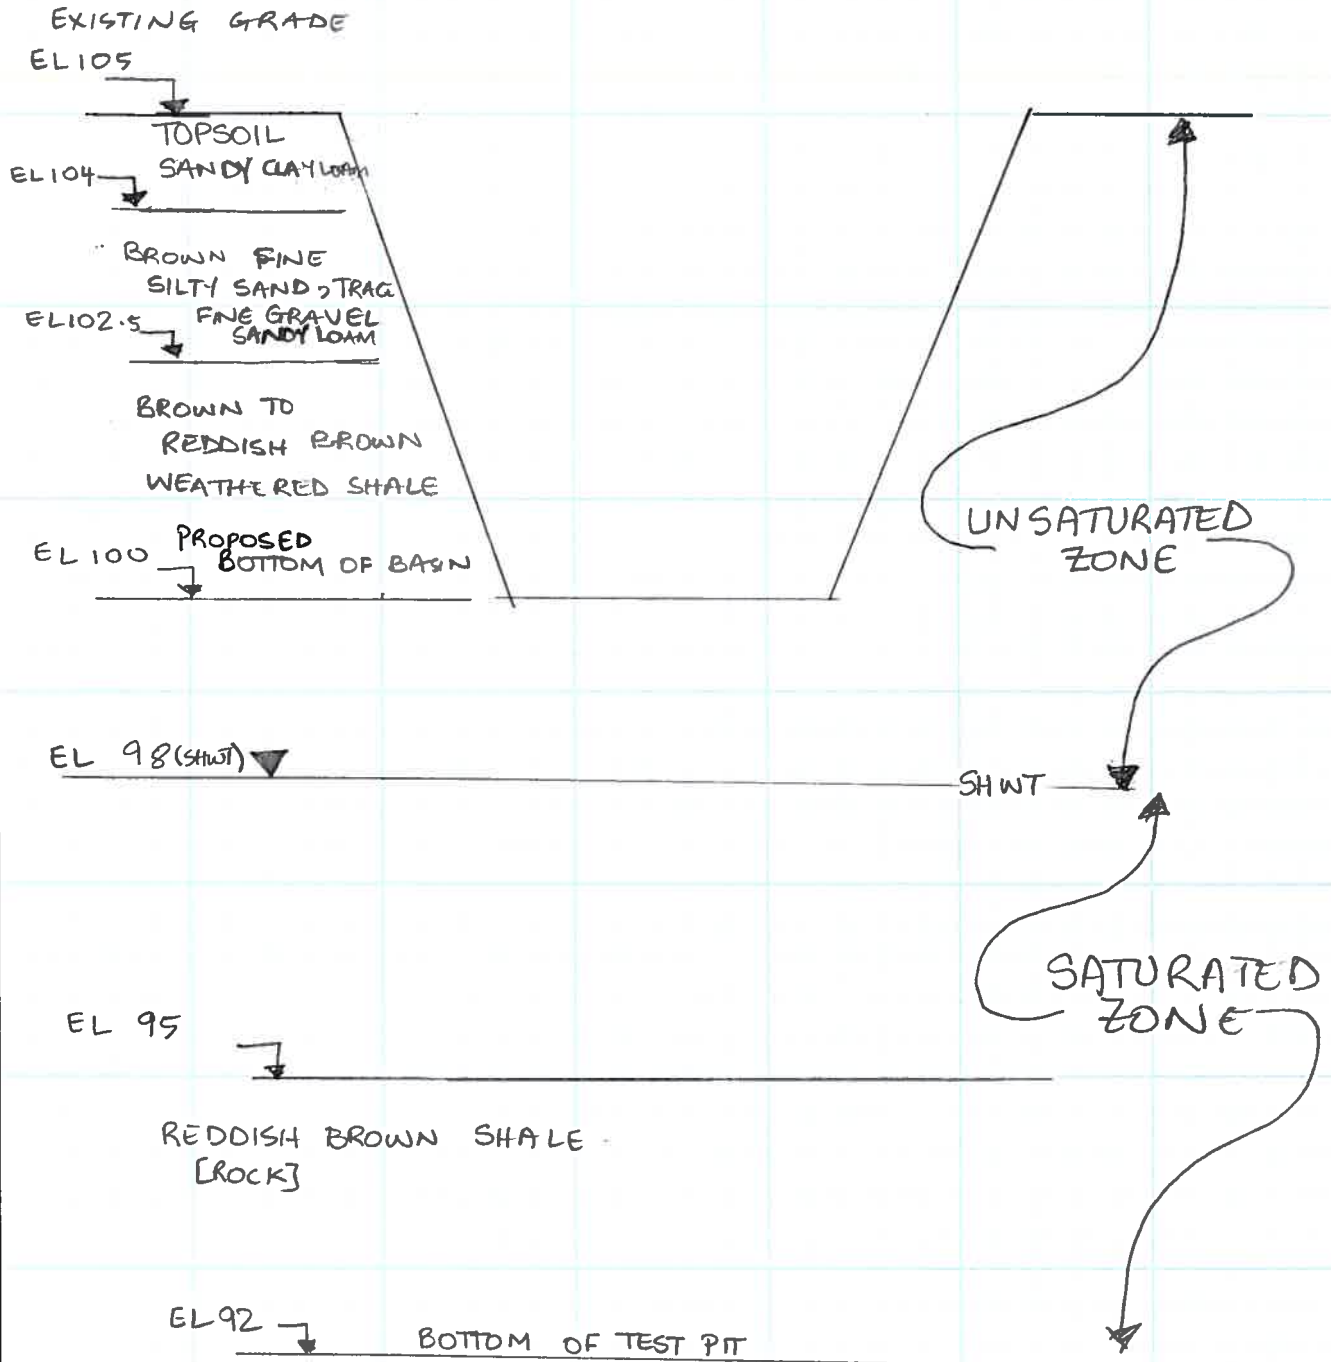 EXISTING GRADE
EL 105
TOPSOIL
SANDY CLAY LOAM
EL 104
BROWN FINE
SILTY SAND, TRACE
FINE GRAVEL
SANDY LOAM
EL 102.5
BROWN TO
REDDISH BROWN
WEATHERED SHALE
EL 100
PROPOSED
BOTTOM OF BASIN
UNSATURATED
ZONE
EL 98 (SHWT)
SHWT
SATURATED
ZONE
EL 95
REDDISH BROWN SHALE
[ROCK]
EL 92
BOTTOM OF TEST PIT